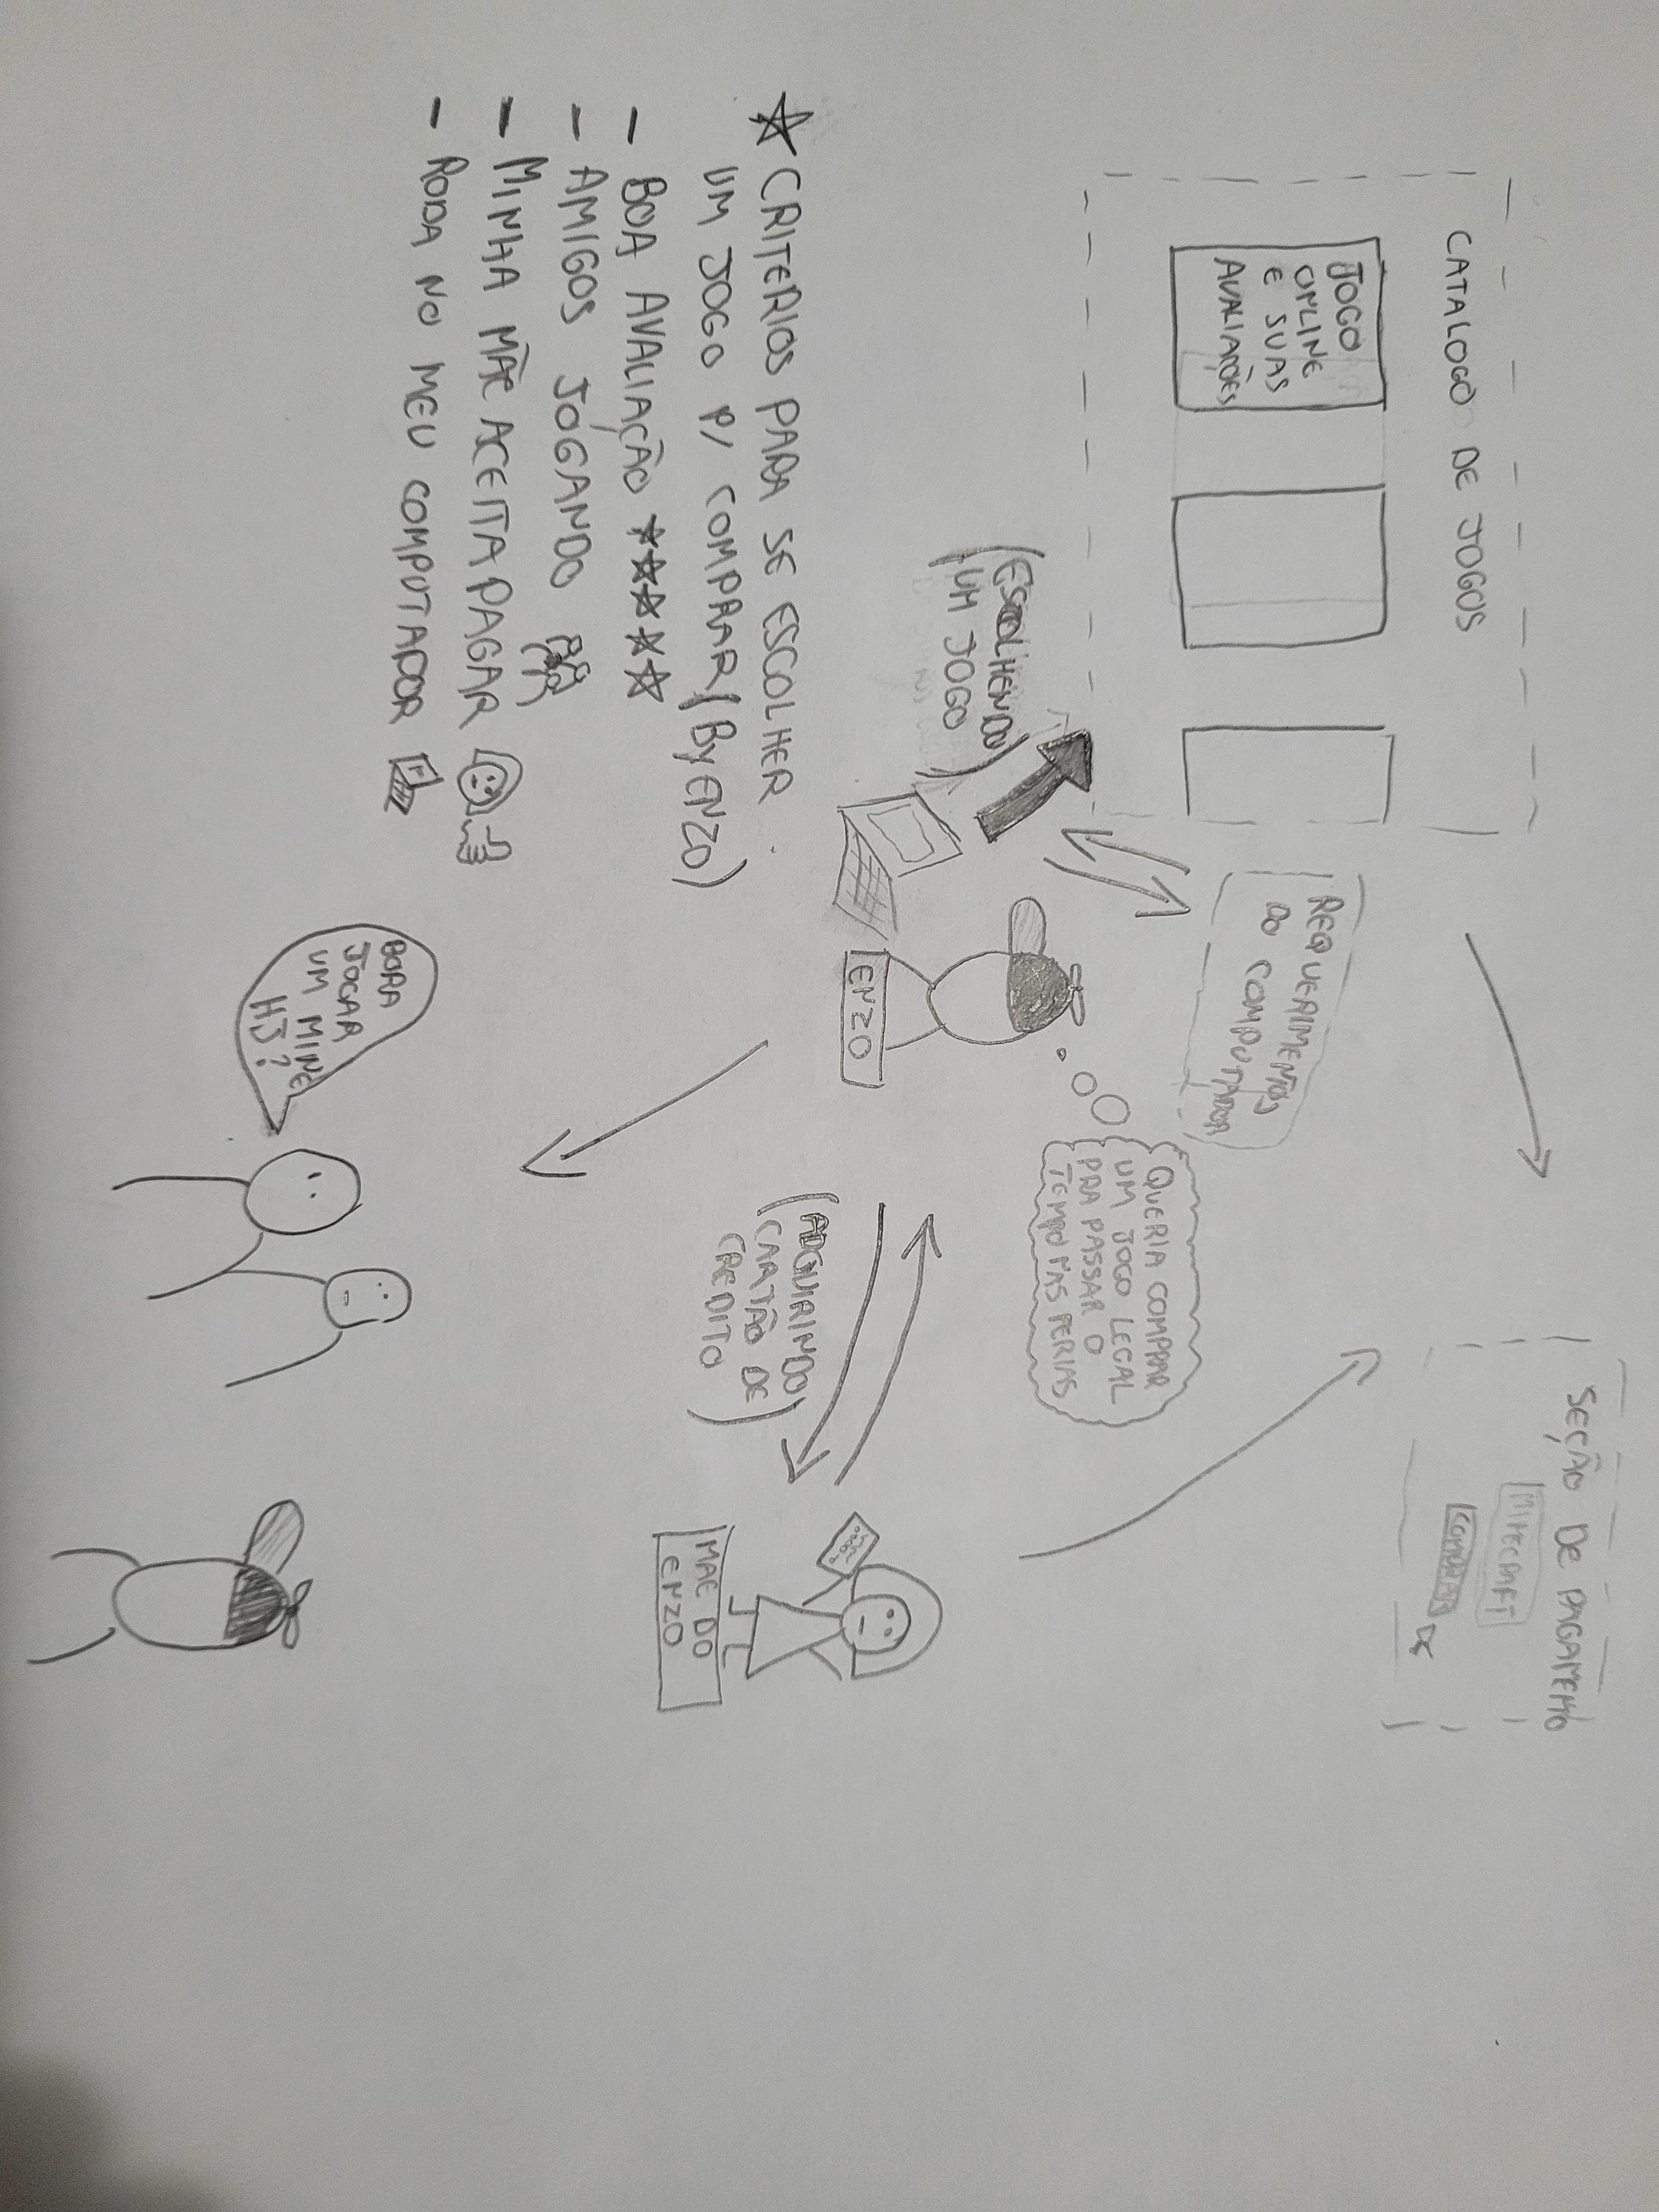 SEÇÃO DE PAGAMENTO
MINECRAFT
COMPRAR
CATALOGO DE JOGOS
JOGO
ONLINE
E SUAS
AVALIAÇÕES
REQUERIMENTOS
DO COMPUTADOR
QUERIA COMPRAR
UM JOGO LEGAL
PRA PASSAR O
TEMPO NAS FERIAS
(ESCOLHENDO
UM JOGO)
ENZO
(ADQUIRINDO
CARTÃO DE
CREDITO)
MAE DO
ENZO
☆ CRITERIOS PARA SE ESCOLHER
UM JOGO P/ COMPRAR (By ENZO)
- BOA AVALIAÇÃO ☆☆☆☆☆
- AMIGOS JOGANDO
- MINHA MÃE ACEITA PAGAR
- RODA NO MEU COMPUTADOR
BORA
JOGAR
UM MINE
HJ?